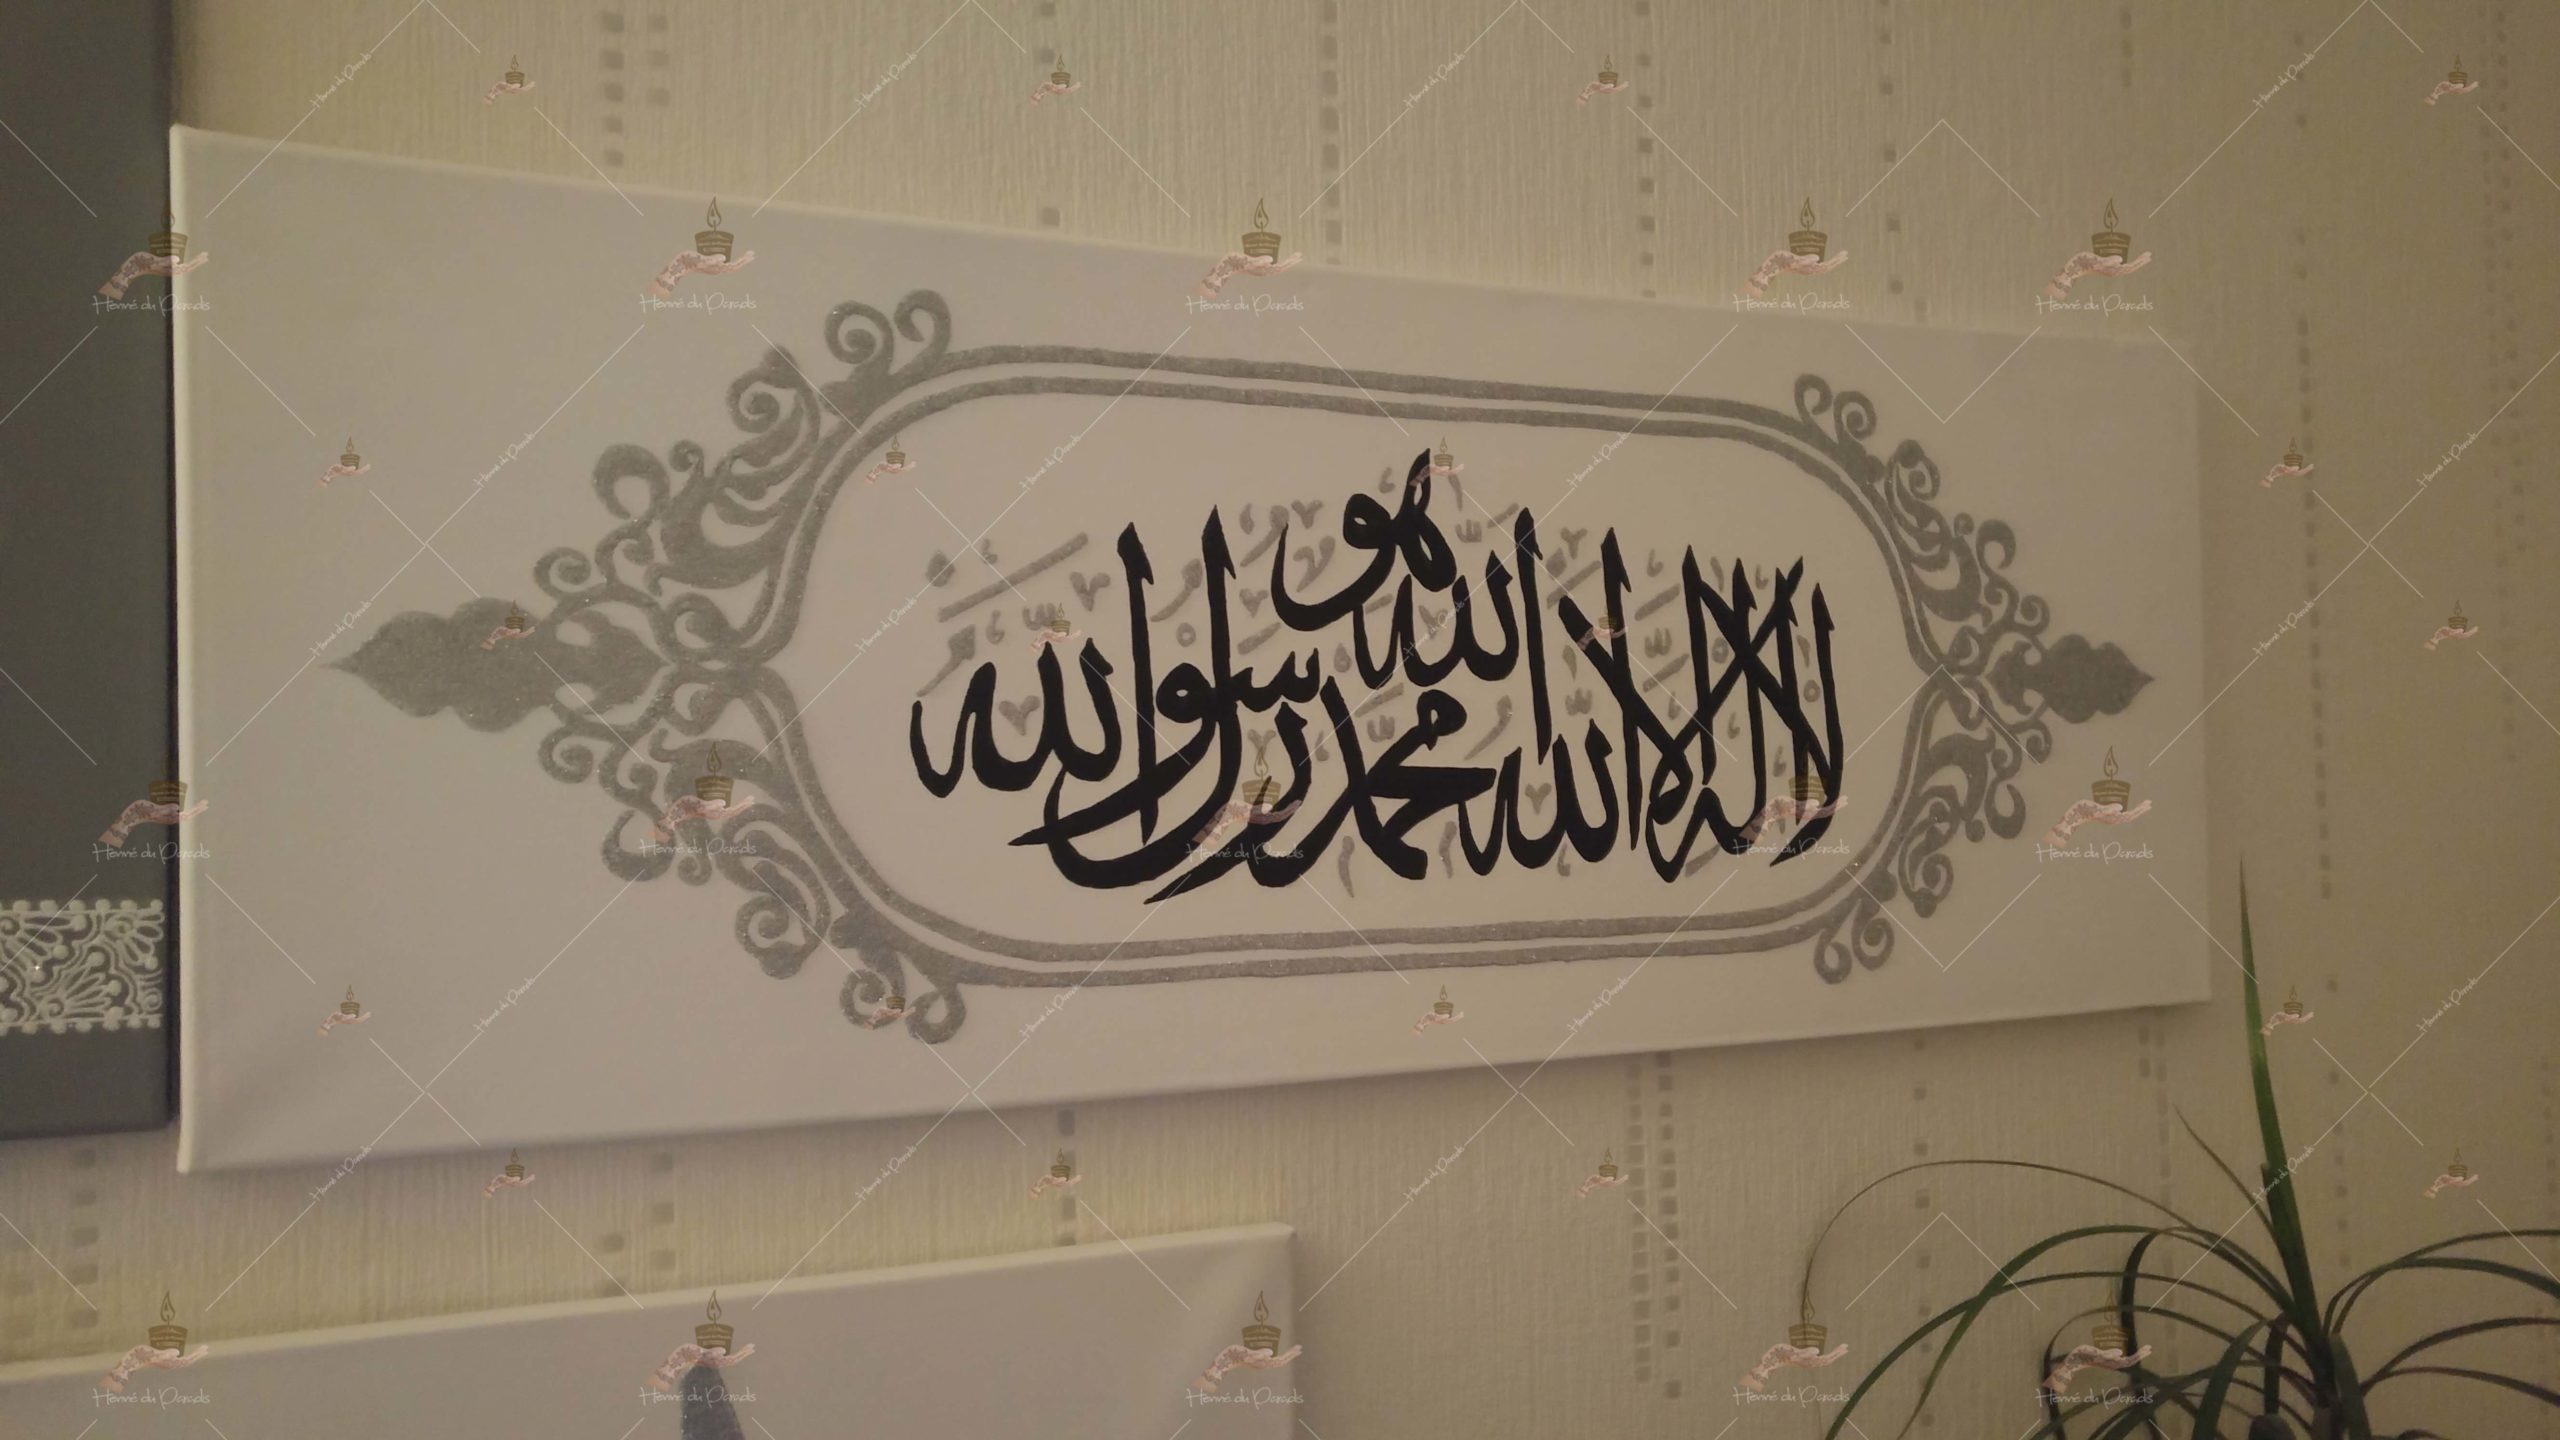 هو الله
لا اله الا الله محمد رسول الله
Henné du Paradis